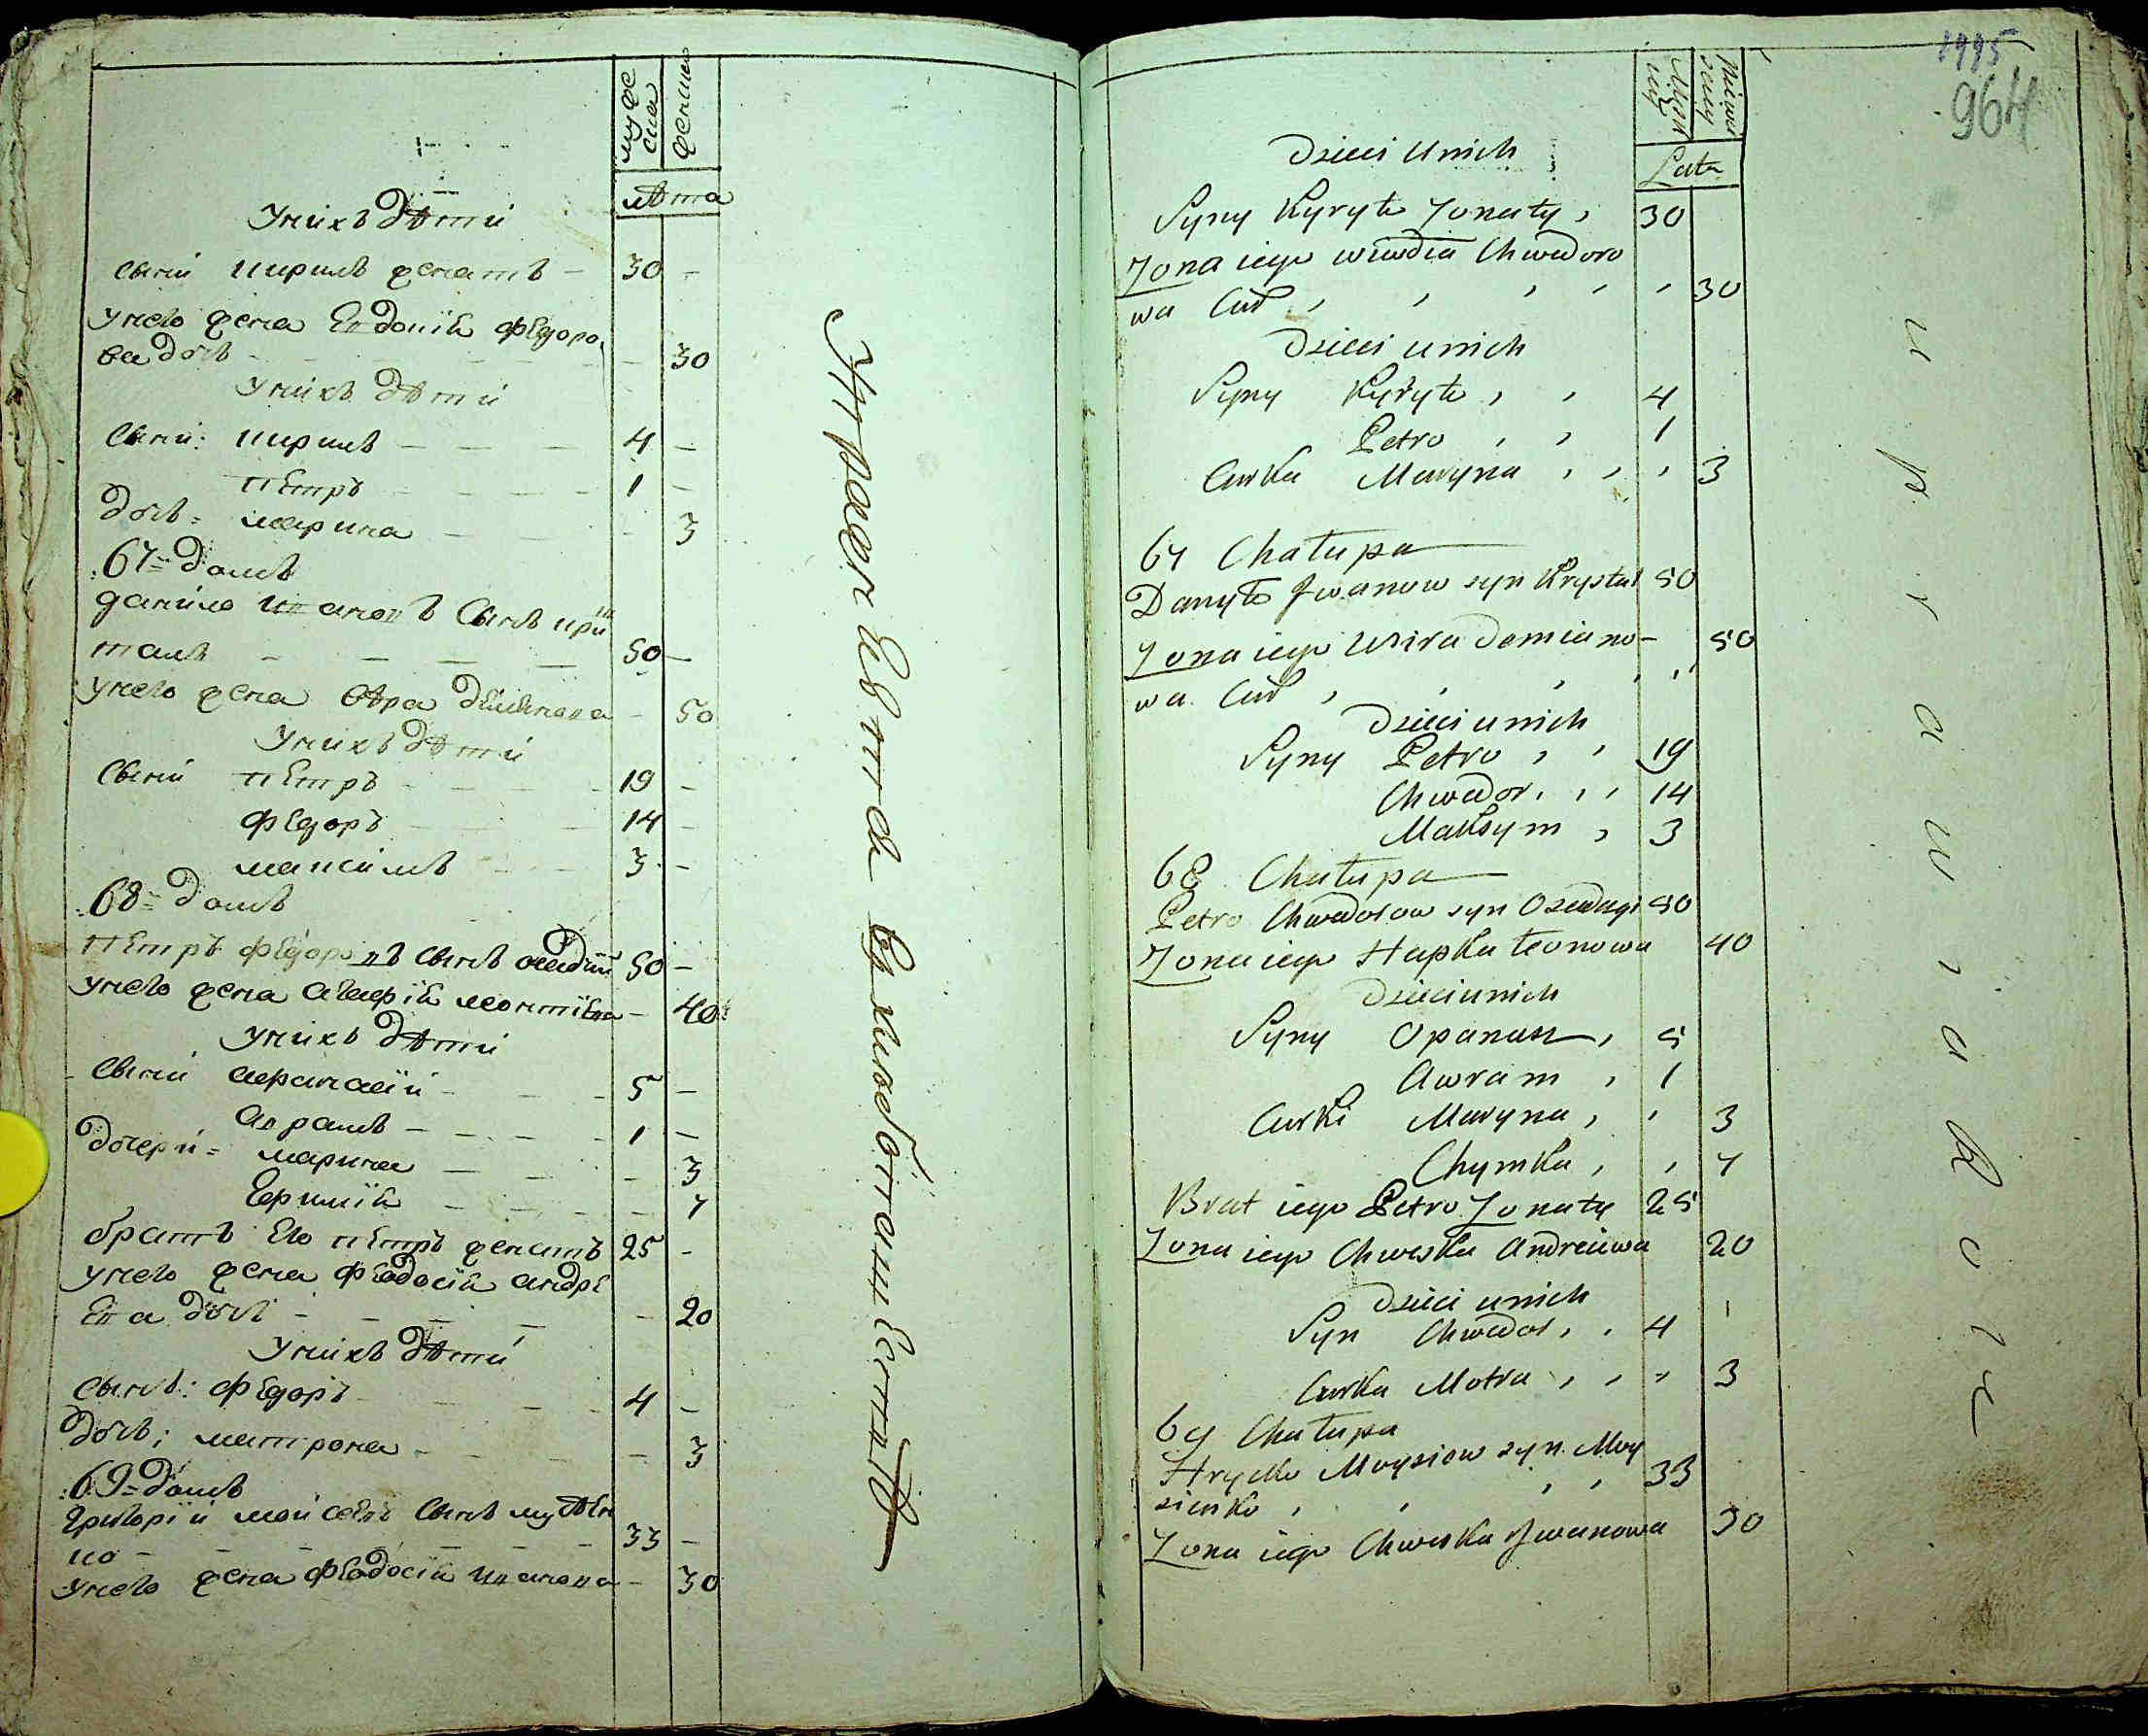 муже
ска
женск
лѣта
У нихъ дѣти
Сыни Кирилъ женатъ - 30 -
У него жена Евдокія Федоро
ва дочь - - 30
У нихъ дѣти
Сыни: Кирилъ - 4 -
Петръ - 1 -
Дочь: Марина - - 3
:67= Домъ
Данило Ивановъ Сынъ Кри
таль - 50 -
У него жена Вѣра Демянова - 50
У нихъ дѣти
Сыни Петръ - 19 -
Федоръ - 14 -
Максимъ - 3 -
:68= Домъ
Петръ Федоровъ Сынъ 50 -
У него жена Агафія - 40
У нихъ дѣти
Сыни Афанасій - 5 -
Аврамъ - 1 -
Дочери= Марина - - 3
Ефимія - - 7
братъ Его Петръ женатъ 25 -
У него жена Феодосія Андре
Ева дочь - - 20
У нихъ дѣти
Сынъ: Федоръ - 4 -
Дочь: Матрона - - 3
:69= Домъ
Григорій Мойсеевъ Сынъ
ко - 33 -
У него жена Феодосія Иванова - 30
1995
964
Lata
Dzieci u nich
Syny Kyryło Żonaty, 30
Żona iego Wiwdia Chwedoro
wa Cur, , , , , 30
Dzieci u nich
Syny Kyryło, , 4
Petro , , 1
Curka Maryna , , , 3
67 Chałupa
Danyło Iwanow syn Krystal 50
Żona iego Wira Demiano- 50
wa Cur , , , , ,
Dzieci u nich
Syny Petro , , 19
Chwedor, , , 14
Maksym , 3
68 Chałupa
Petro Chwedorow syn 50
Żona iego Hapka Leonowa 40
Dzieci u nich
Syny Opanas, 5
Awram , 1
Curki Maryna, , 3
Chymka, , 7
Brat iego Petro Żonaty 25
Żona iego Chweska Andreiewa 20
Dzieci u nich
Syn Chwedor, , 4
Curka Motra , , , 3
69 Chałupa
Hryćko Moysiow syn Moy
sienko , , , , 33
Żona iego Chweska Iwanowa 30